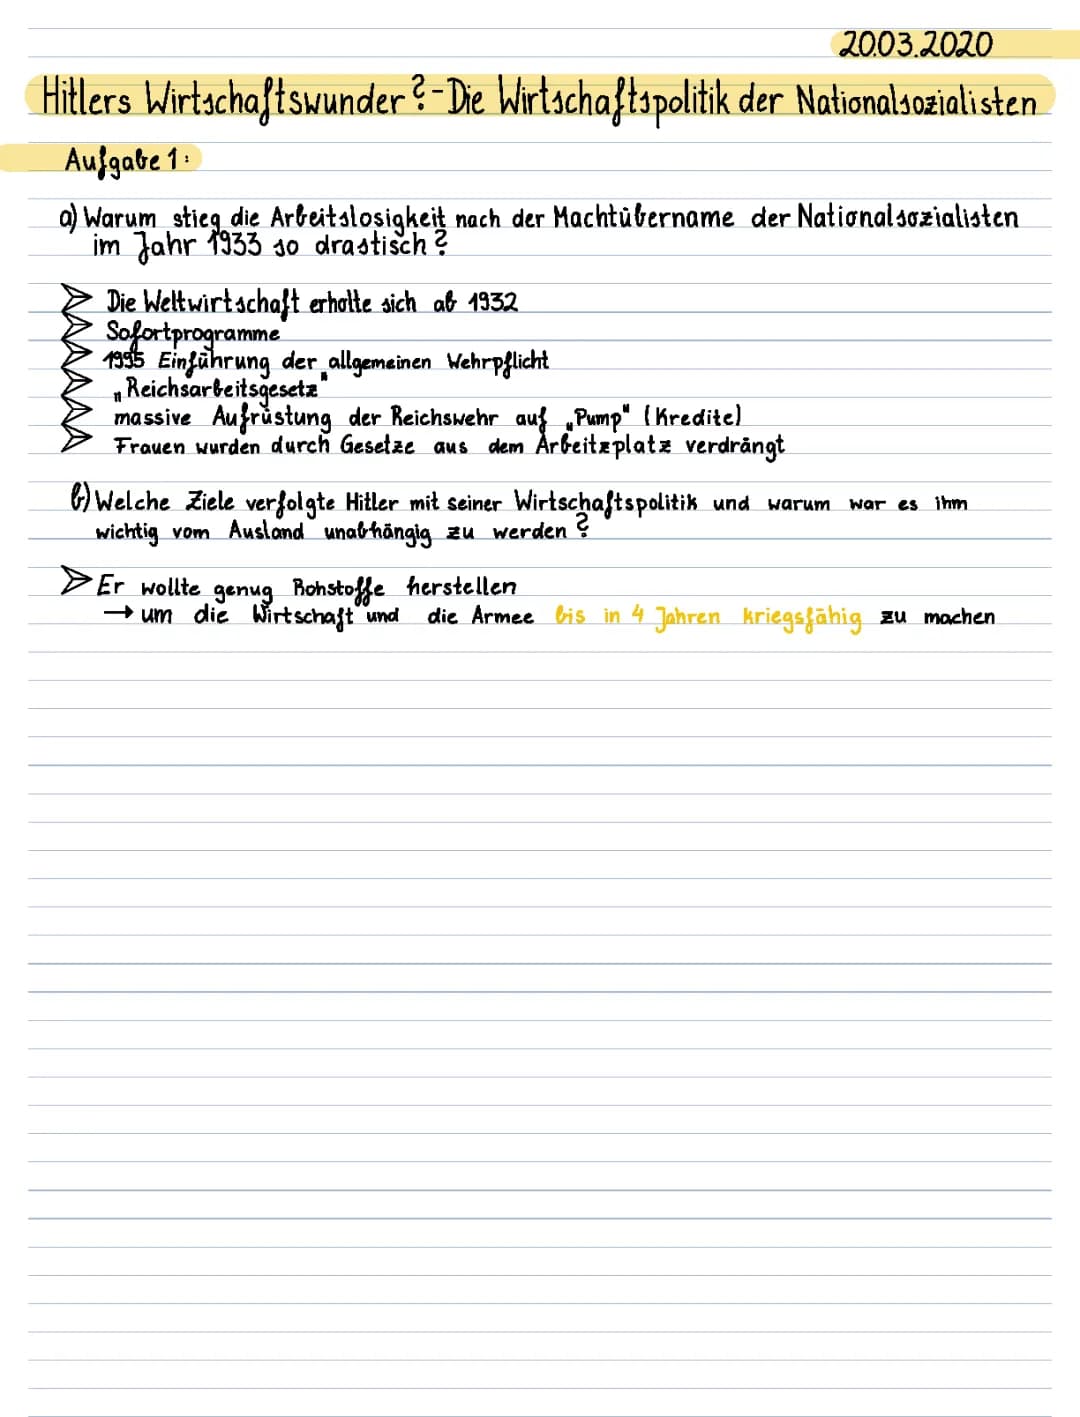 20.03.2020
Hitlers Wirtschaftswunder? - Die Wirtschaftspolitik der Nationalsozialisten
Aufgabe 1:
a) Warum stieg die Arbeitslosigkeit nach der Machtübername der Nationalsozialisten
im Jahr 1933 so drastisch?
Die Weltwirtschaft erholte sich ab 1932
Sofortprogramme
1935 Einführung der allgemeinen Wehrpflicht
„Reichsarbeitsgesetz"
massive Aufrüstung der Reichswehr auf „Pump" (Kredite)
Frauen wurden durch Gesetze aus dem Arbeitzplatz verdrängt
b) Welche Ziele verfolgte Hitler mit seiner Wirtschaftspolitik und warum war es ihm
wichtig vom Ausland unabhängig zu werden?
Er wollte genug Rohstoffe herstellen
→ um die Wirtschaft und die Armee bis in 4 Jahren kriegsfähig zu machen